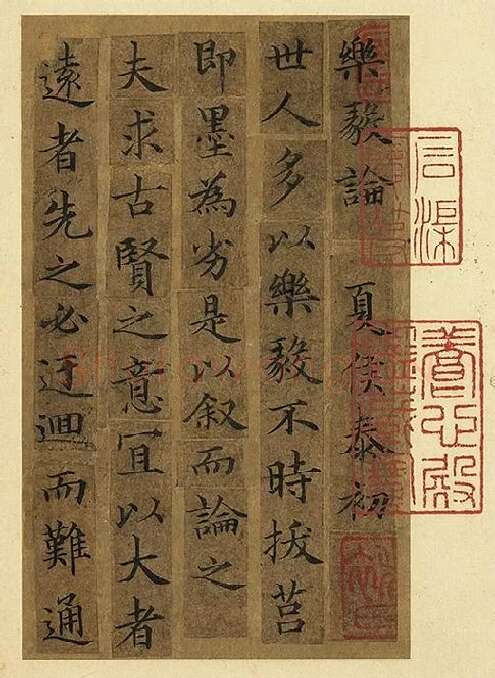 樂毅論 夏侯泰初
世人多以樂毅不時拔莒
即墨為劣是以叙而論之
夫求古賢之意宜以大者
遠者先之必迂迴而難通
養心殿